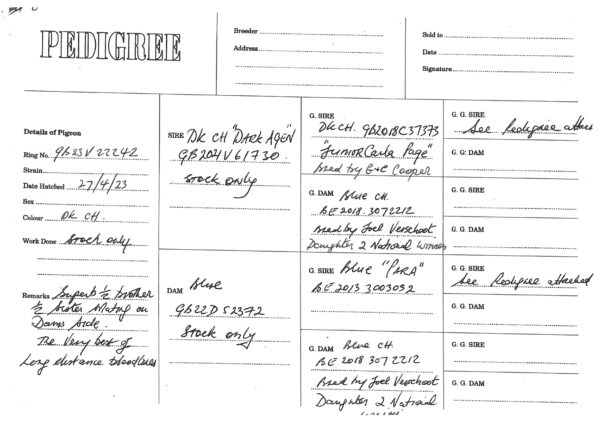 PEDIGREE
Breeder
Address
Sold to
Date
Signature
Details of Pigeon
Ring No. GB23V22242
Strain
Date Hatched 27/4/23
Sex
Colour DK CH.
Work Done Stock only
Remarks Superb ½ brother
½ sister Mating on
Dams side.
The Very best of
Long distance bloodlines
SIRE DK CH "DARK AGEN"
GB20V61730.
Stock only
DAM Blue
GB22D52372
Stock only
G. SIRE
DK CH. GB2018C37373
"JUNIOR Carla Page"
Bred by G+C Cooper
G. DAM Blue CH.
BE 2018. 3072212
Bred by Joel Verschoot
Daughter 2 National winners
G. SIRE Blue "PARA"
BE 2013 3003052
G. DAM Blue CH.
BE 2018 3072212
Bred by Joel Verschoot
Daughter 2 National
G. G. SIRE
See Pedigree attached
G. G: DAM
G. G. SIRE
G. G. DAM
G. G. SIRE
See Pedigree attached
G. G. DAM
G. G. SIRE
G. G. DAM